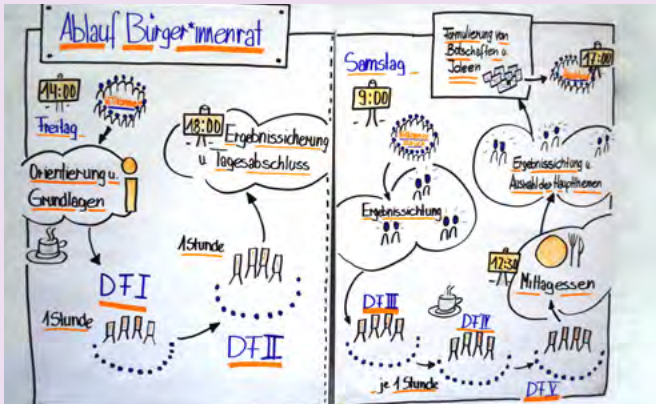 Ablauf Bürger*innenrat
14:00
Freitag
Orientierung u.
Grundlagen
DF I
1 Stunde
DF II
1 Stunde
18:00
Ergebnissicherung
u Tagesabschluss
Samstag
9:00
Ergebnissichtung
DF III
DF IV
DF V
je 1 Stunde
12:30
Mittagessen
Ergebnissichtung u
Auswahl der Hauptthemen
Formulierung von
Botschaften u.
Ideen
17:00